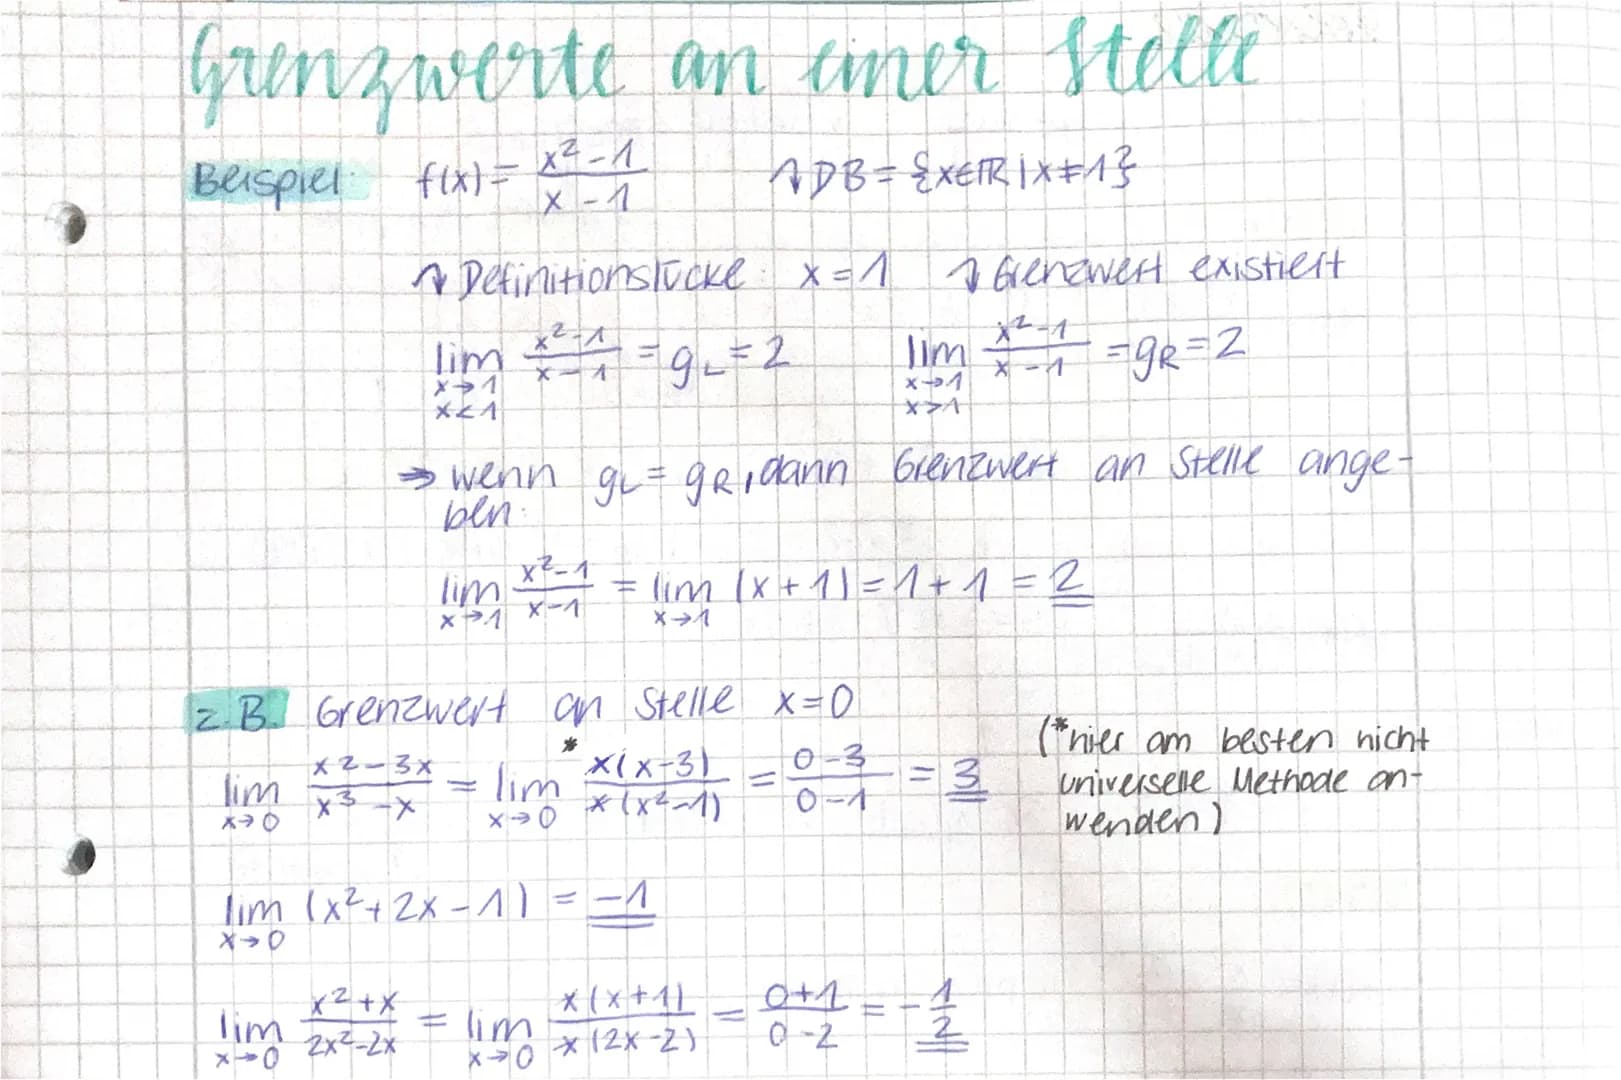 Grenzwerte an einer Stelle
Beispiel: f(x) = (x² - 1)/(x - 1) ↴ DB = {x∈ℝ | x ≠ 1}
↴ Definitionslücke: x = 1 ↴ Grenzwert existiert
lim x→1 x<1 (x² - 1)/(x - 1) = g_L = 2 lim x→1 x>1 (x² - 1)/(x - 1) = g_R = 2
⇒ wenn g_L = g_R, dann Grenzwert an Stelle ange-
ben:
lim x→1 (x² - 1)/(x - 1) = lim x→1 (x + 1) = 1 + 1 = 2
z.B. Grenzwert an Stelle x = 0
lim x→0 (x² - 3x)/(x³ - x) = lim* x→0 x(x - 3)/x(x² - 1) = (0 - 3)/(0 - 1) = 3
(*hier am besten nicht
universelle Methode an-
wenden)
lim x→0 (x² + 2x - 1) = -1
lim x→0 (x² + x)/(2x² - 2x) = lim x→0 x(x + 1)/x(2x - 2) = (0 + 1)/(0 - 2) = -1/2